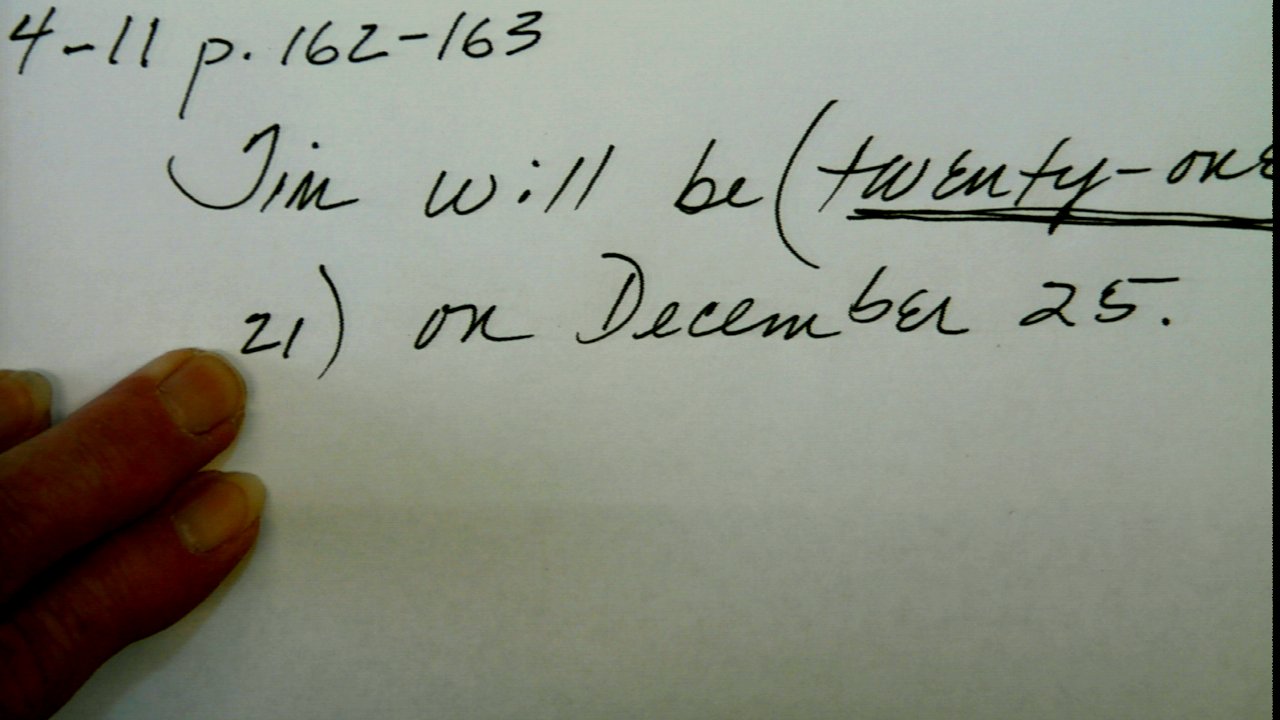 4-11 p. 162-163
Jim will be (twenty-one
21) on December 25.